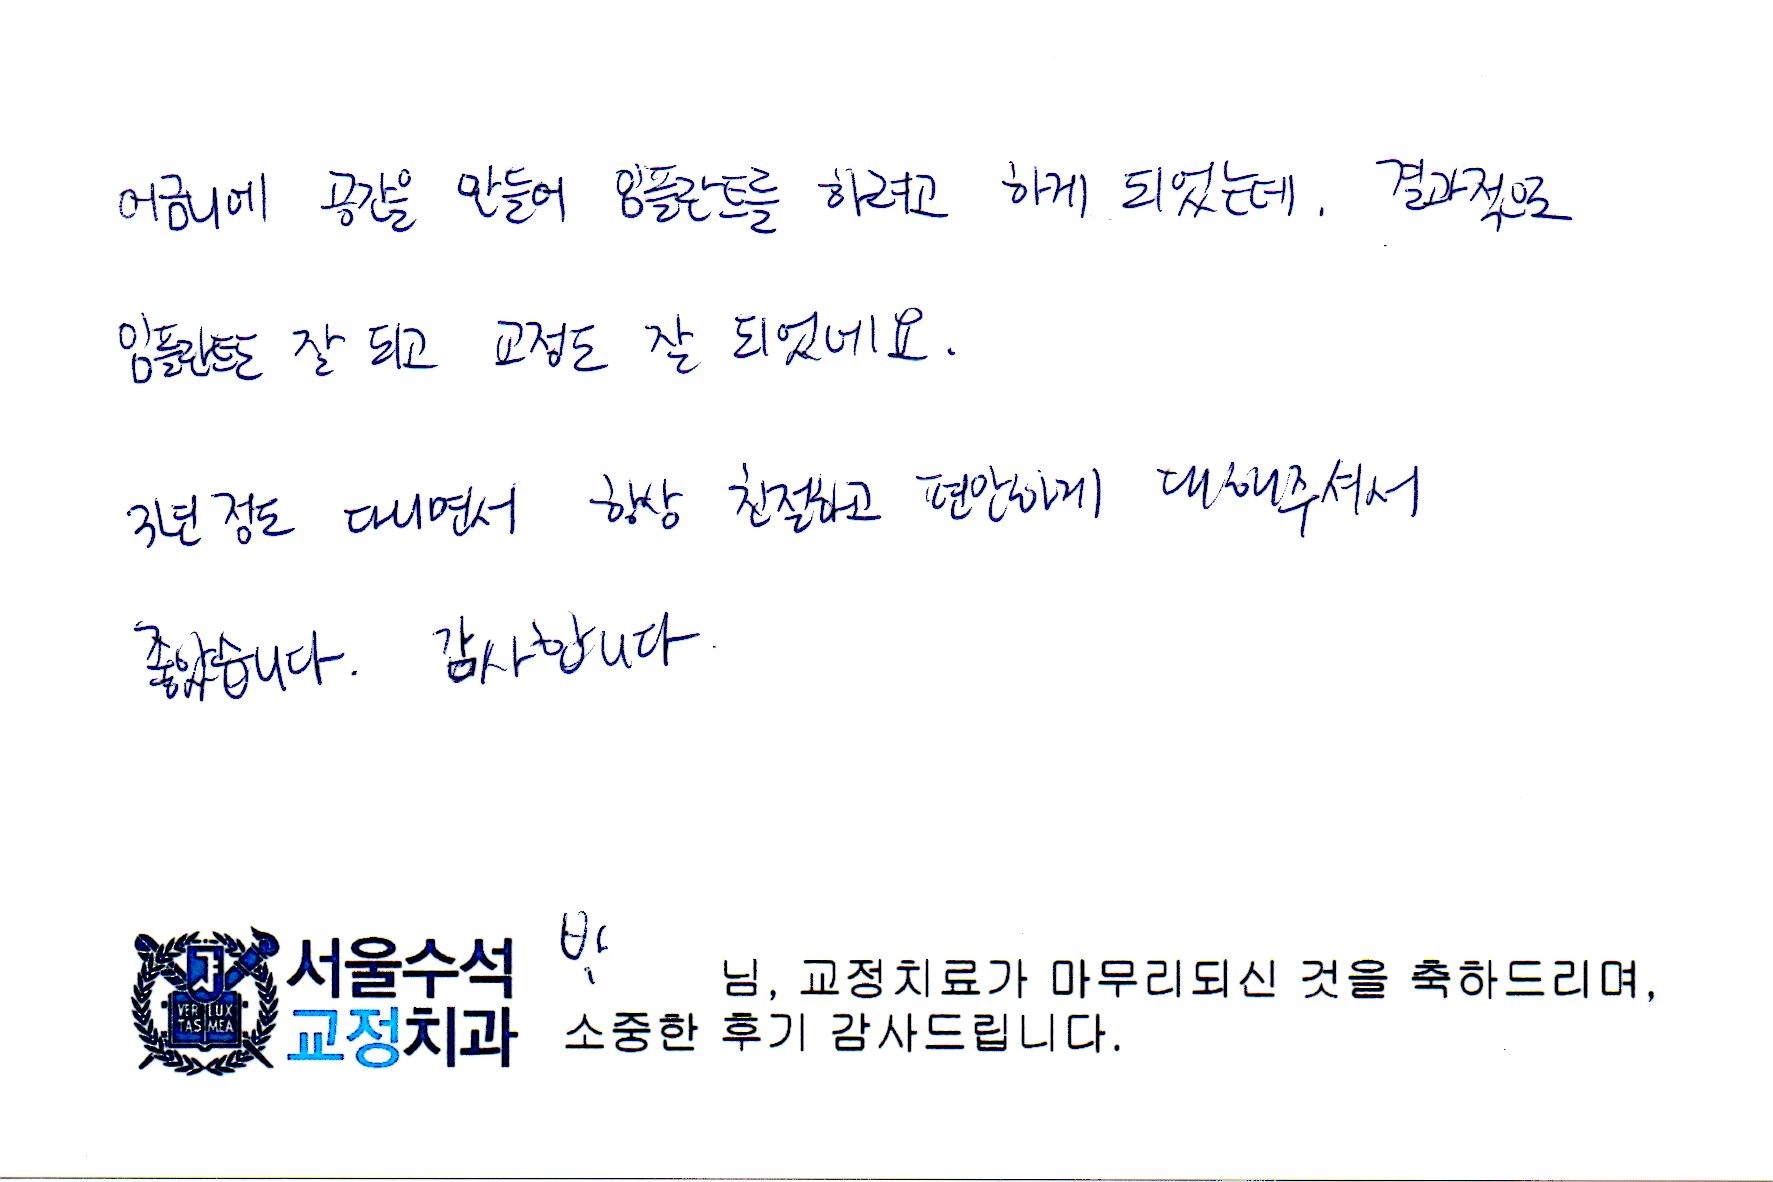 어금니에 공간을 만들어 임플란트를 하려고 하게 되었는데, 결과적으로
임플란트도 잘 되고 교정도 잘 되었네요.
3년 정도 다니면서 항상 친절하고 편안하게 대해주셔서
좋았습니다. 감사합니다.
서울수석
교정치과
VERI LUX
TAS MEA
박 님, 교정치료가 마무리되신 것을 축하드리며,
소중한 후기 감사드립니다.